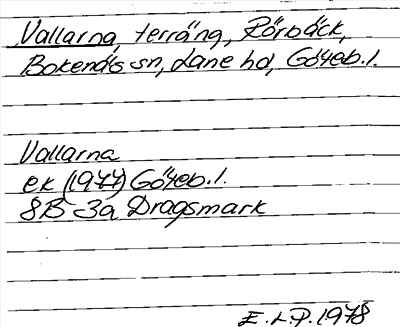 Vallarna, terräng, Rörbäck,
Bokenäs sn, Lane hd, Göteb. l.
Vallarna
ek (1977) Göteb. l.
8B 3a Dragsmark
E.L.P. 1978